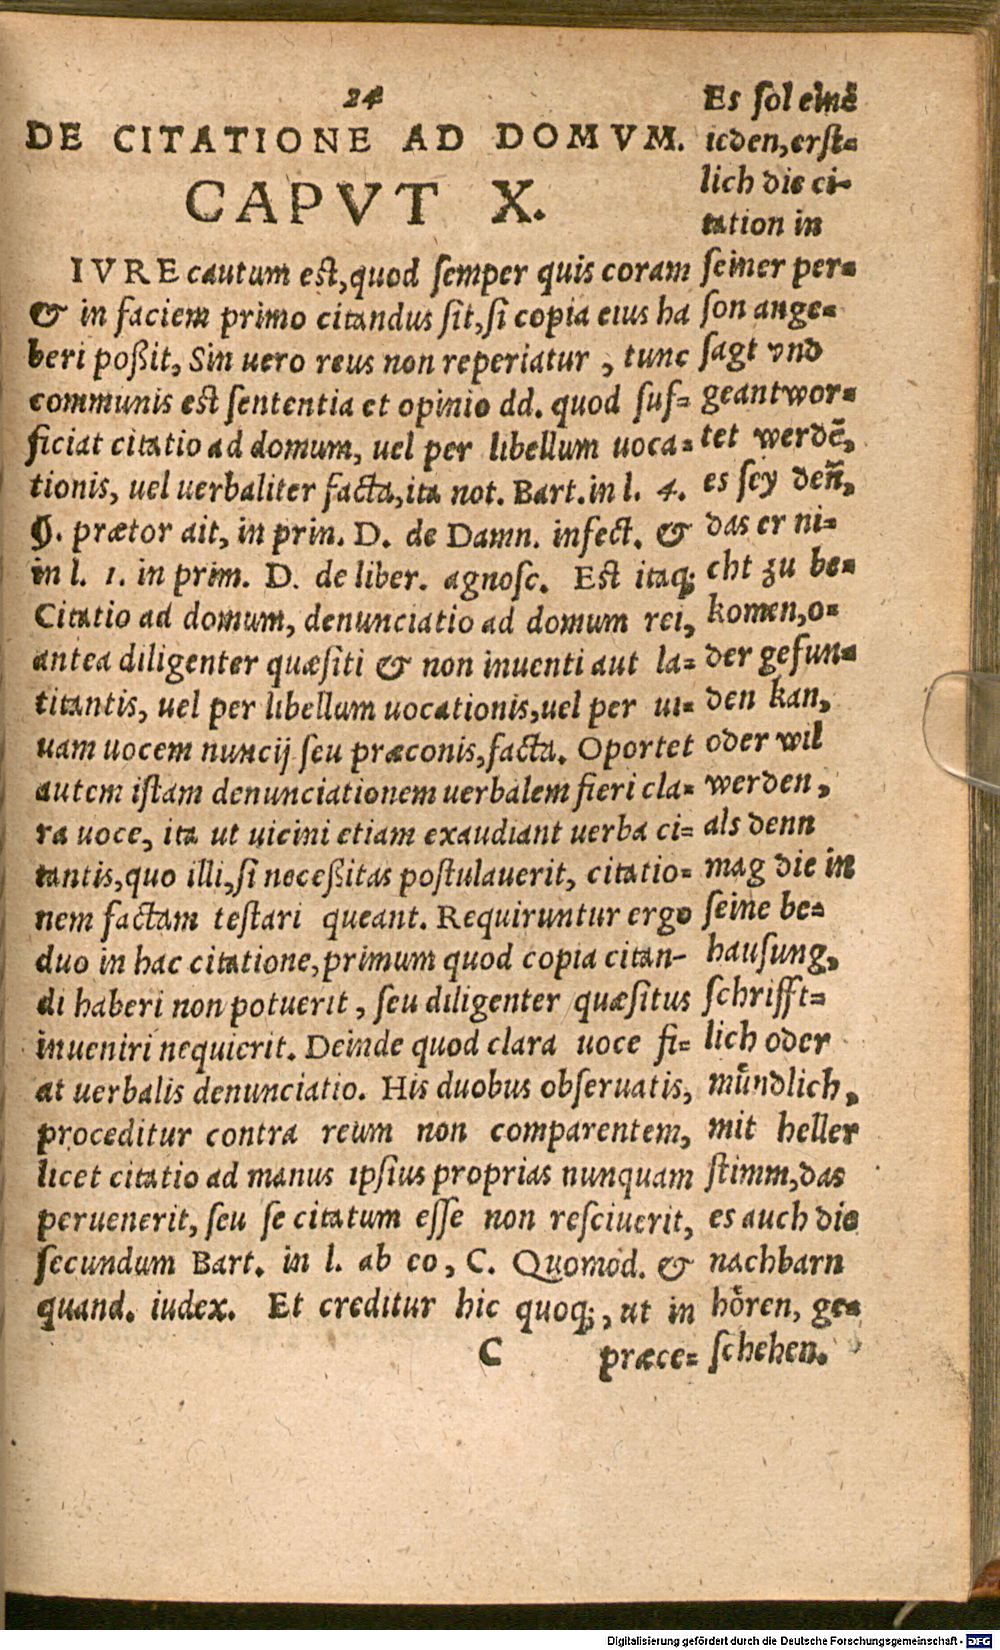 24
DE CITATIONE AD DOMVM.
CAPVT X.
IVRE cautum est, quod semper quis coram
& in faciem primo citandus sit, si copia eius ha
beri poßit, Sin uero reus non reperiatur, tunc
communis est sententia et opinio dd. quod suf-
ficiat citatio ad domum, uel per libellum uoca-
tionis, uel uerbaliter facta, ita not. Bart. in l. 4.
§. prætor ait, in prin. D. de Damn. infect. &
in l. 1. in prim. D. de liber. agnosc. Est itaq;
Citatio ad domum, denunciatio ad domum rei,
antea diligenter quæsiti & non inuenti aut la-
titantis, uel per libellum uocationis, uel per ui-
uam uocem nuncij seu præconis, facta. Oportet
autem istam denunciationem uerbalem fieri cla-
ra uoce, ita ut uicini etiam exaudiant uerba ci-
tantis, quo illi, si neceßitas postulauerit, citatio-
nem factam testari queant. Requiruntur ergo
duo in hac citatione, primum quod copia citan-
di haberi non potuerit, seu diligenter quæsitus
inueniri nequierit. Deinde quod clara uoce fi-
at uerbalis denunciatio. His duobus obseruatis,
proceditur contra reum non comparentem,
licet citatio ad manus ipsius proprias nunquam
peruenerit, seu se citatum esse non resciuerit,
secundum Bart. in l. ab eo, C. Quomod. &
quand. iudex. Et creditur hic quoq;, ut in
C præce-
Es sol einē
ieden, erst-
lich die ci-
tation in
seiner per-
son ange-
sagt vnd
geantwor-
tet werdē,
es sey deñ,
das er ni-
cht zu be-
komen, o-
der gefun-
den kan,
oder wil
werden,
als denn
mag die in
seine be-
hausung,
schrifft-
lich oder
mündlich,
mit heller
stimm, das
es auch die
nachbarn
hören, ge-
schehen.
Digitalisierung gefördert durch die Deutsche Forschungsgemeinschaft - DFG